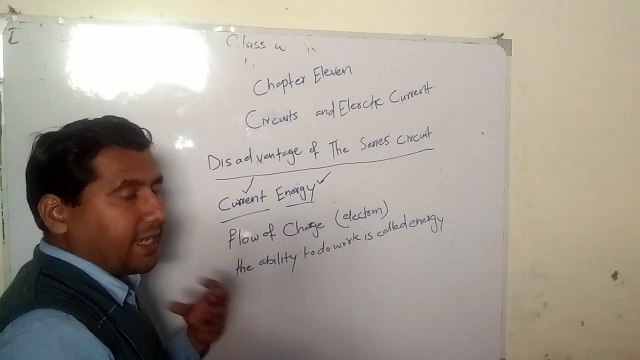 Class
Chapter Eleven
Circuits and Elerctic Current
Disadvantage of The Series Circuit
Current Energy
flow of Charge (electron)
the ability to do work is called energy